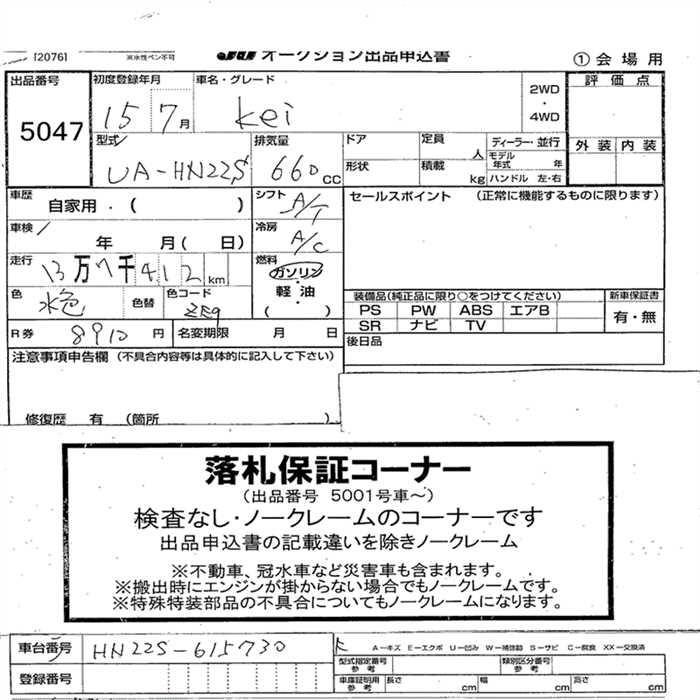 [2076] ※水性ペン不可 JU オークション出品申込書 ①会場用
出品番号 初度登録年月 車名・グレード 評価点
5047 15 7月 Kei 2WD・4WD
外装 内装
型式 排気量 ドア 定員 人 ディーラー・並行
UA-HN22S 660cc 形状 積載 kg モデル年式 年
ハンドル 左・右
車歴 自家用・( ) シフト A/T セールスポイント (正常に機能するものに限ります)
車検 年 月(日) 冷房 A/C
走行 13万7千412km 燃料 ガソリン・軽油・( )
色 水色 色替 色コード ZE9
装備品(純正品に限り○をつけてください) 新車保証書
PS PW ABS エアB 有・無
SR ナビ TV
R券 8910円 名変期限 月 日 後日品
注意事項申告欄 (不具合内容等は具体的に記入して下さい)
修復歴 有 (箇所 )
落札保証コーナー
(出品番号 5001号車~)
検査なし・ノークレームのコーナーです
出品申込書の記載違いを除きノークレーム
※不動車、冠水車など災害車も含まれます。
※搬出時にエンジンが掛からない場合でもノークレームです。
※特殊特装部品の不具合についてもノークレームになります。
車台番号 HN22S-615730 A-キズ E-エクボ U-凹み W-補修跡 S-サビ C-腐食 XX-交換済
登録番号 型式指定番号 参考 類別区分番号 参考
車庫証明用 参考 長さ cm 幅 cm 高さ cm